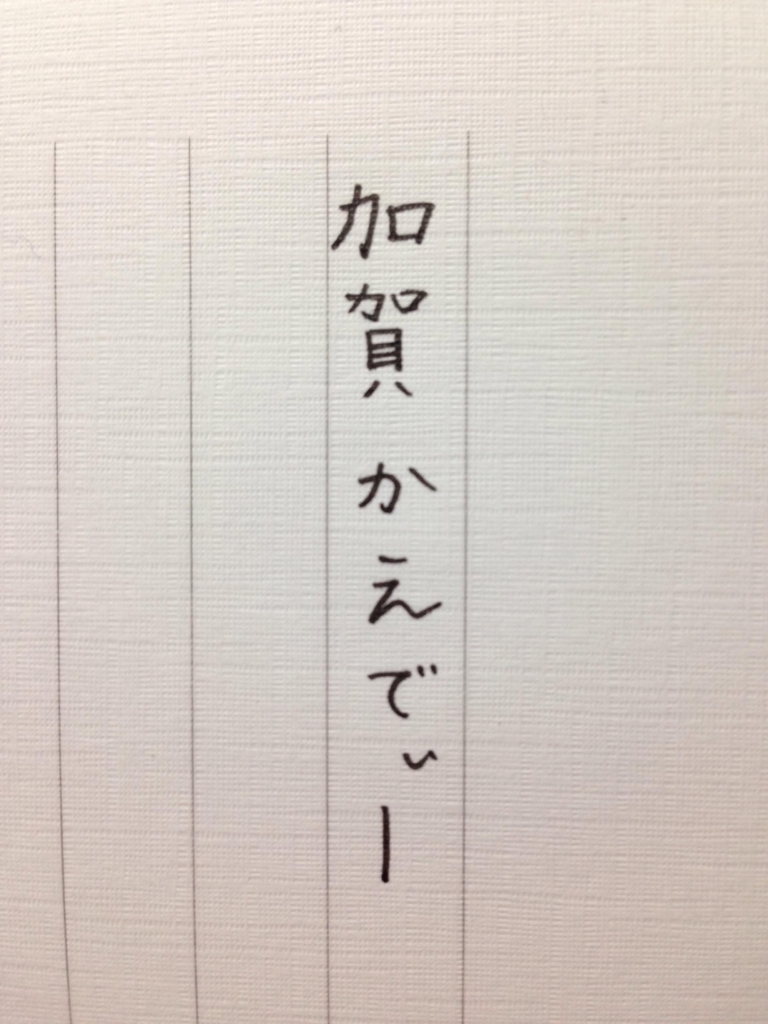 加賀 かえでぃー